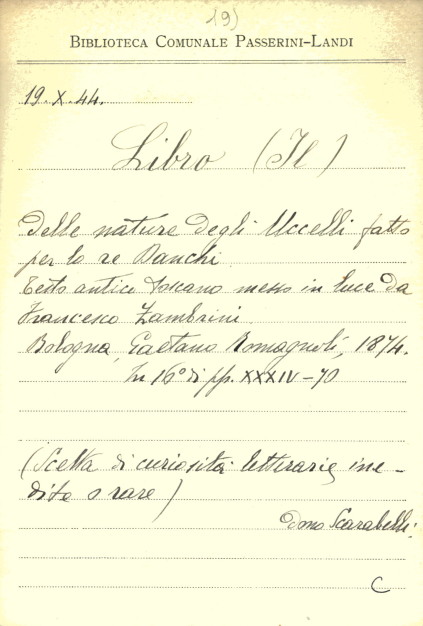 19)
BIBLIOTECA COMUNALE PASSERINI-LANDI
19. X. 44.
Libro (Il)
Delle nature degli Uccelli fatto
per lo re Danchi
Testo antico toscano messo in luce da
Francesco Zambrini
Bologna, Gaetano Romagnoli, 1874.
In 16° di pp. XXXIV-70
(Scelta di curiosità letterarie ine-
dite o rare)
dono Scarabelli.
C